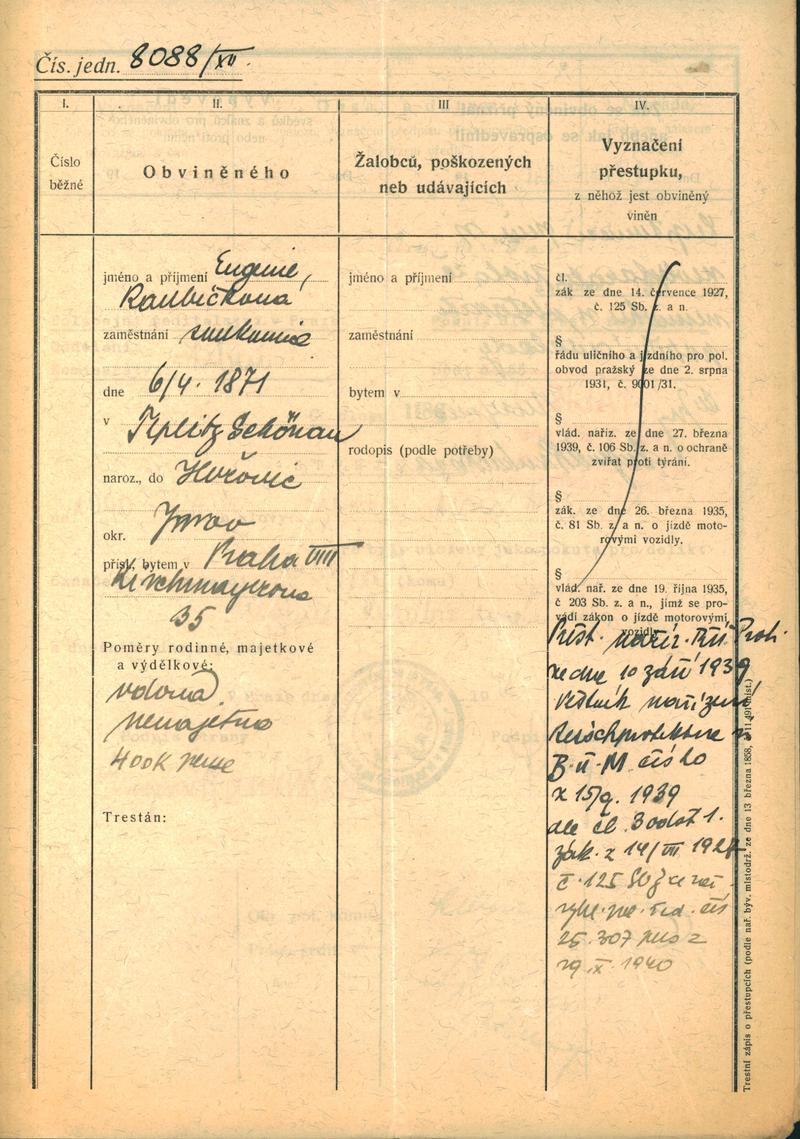 Čís. jedn. 8088/XII.
I.
Číslo
běžné
II.
Obviněného
III
Žalobců, poškozených
neb udávajících
IV.
Vyznačení
přestupku,
z něhož jest obviněný
viněn
jméno a příjmení Eugenie,
Raubíčkova
zaměstnání soukromá
dne 6/4. 1871
v Teplitz Schönau
naroz., do Hořovic
okr.
přísl., bytem v Praha VIII
35
Poměry rodinné, majetkové
a výdělkové:
vdova
nemajetna
400 K
Trestán:
jméno a příjmení
zaměstnání
bytem v
rodopis (podle potřeby)
čl.
zák ze dne 14. července 1927,
č. 125 Sb. z. a n.
§
řádu uličního a jízdního pro pol.
obvod pražský ze dne 2. srpna
1931, č. 9001/31.
§
vlád. naříz. ze dne 27. března
1939, č. 106 Sb. z. a n. o ochraně
zvířat proti týrání.
§
zák. ze dne 26. března 1935,
č. 81 Sb. z a n. o jízdě moto-
rovými vozidly.
§
vlád. nař. ze dne 19. října 1935,
č 203 Sb. z. a n., jímž se pro-
vádí zákon o jízdě motorovými
vozidly.
Přest. naříz. Říš. Prot.
ze dne 10 září 1939
Věstník nařízení
Reichsprotektora v
B. u. M. číslo
z 15/9. 1939
dle čl. 3 odst 1.
zák. z 14/VII 1927
č. 125 Sb z a n
čís
25.307 z
29 IX. 1940
Trestní zápis o přestupcích (podle nař. býv. místodrž. ze dne 13 března 1858,